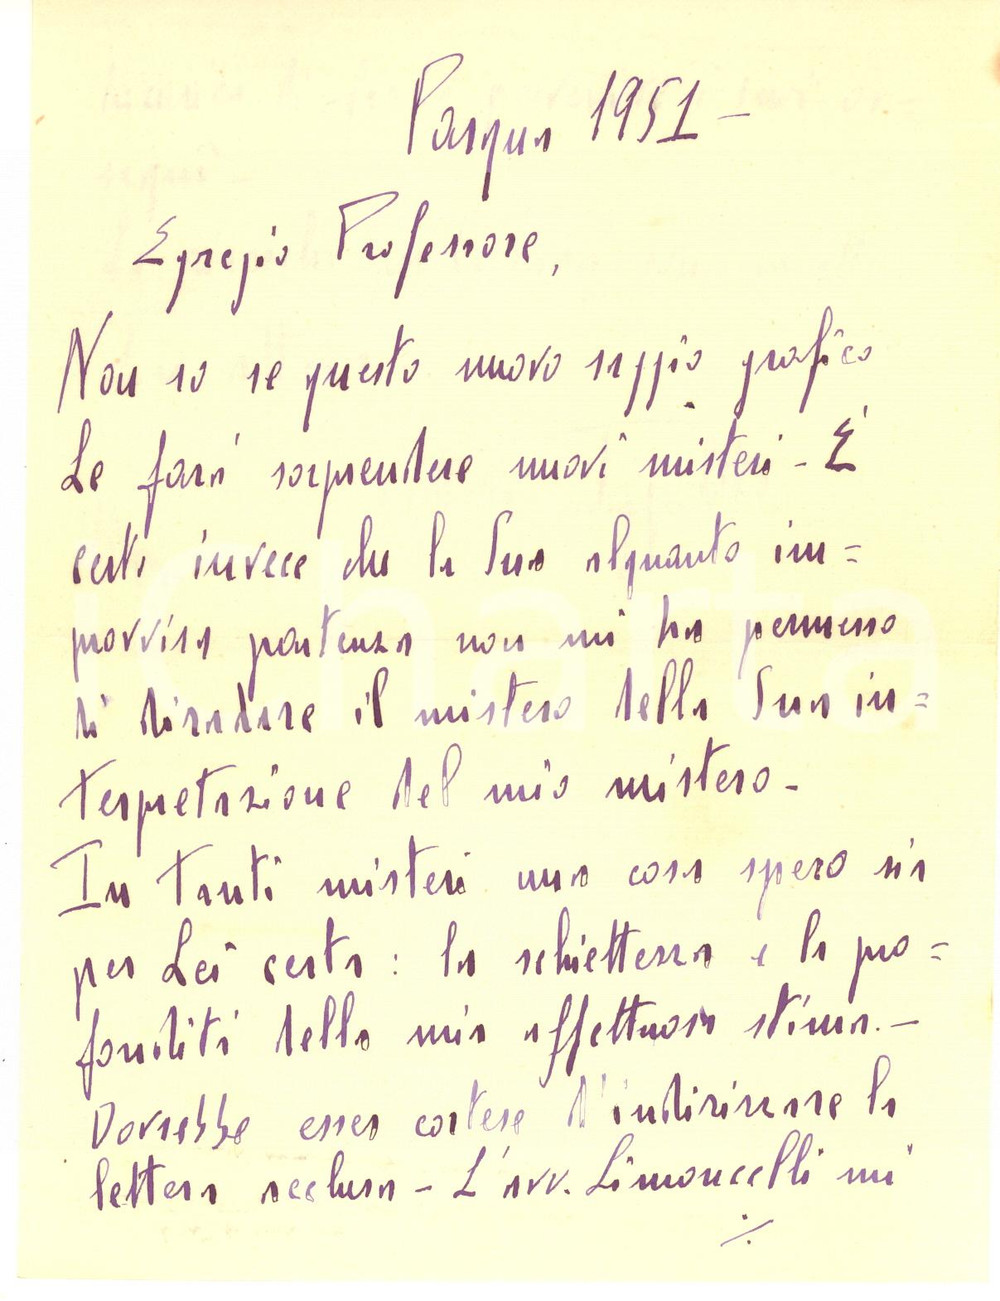 Pasqua 1951 -
Egregio Professore,
Non so se questo nuovo saggio grafico
Le farà sorprendere nuovi misteri - È
certo invece che la Sua alquanto im=
provvisa partenza non mi ha permesso
di diradare il mistero della Sua in=
terpretazione del mio mistero -
In tanti misteri una cosa spero sia
per Lei certa: la schiettezza e la pro=
fondità della mia affettuosa stima. -
Dovrebbe esser cortese d'indirizzare la
lettera acclusa - L'avv. Limoncelli mi
./.
iCharta